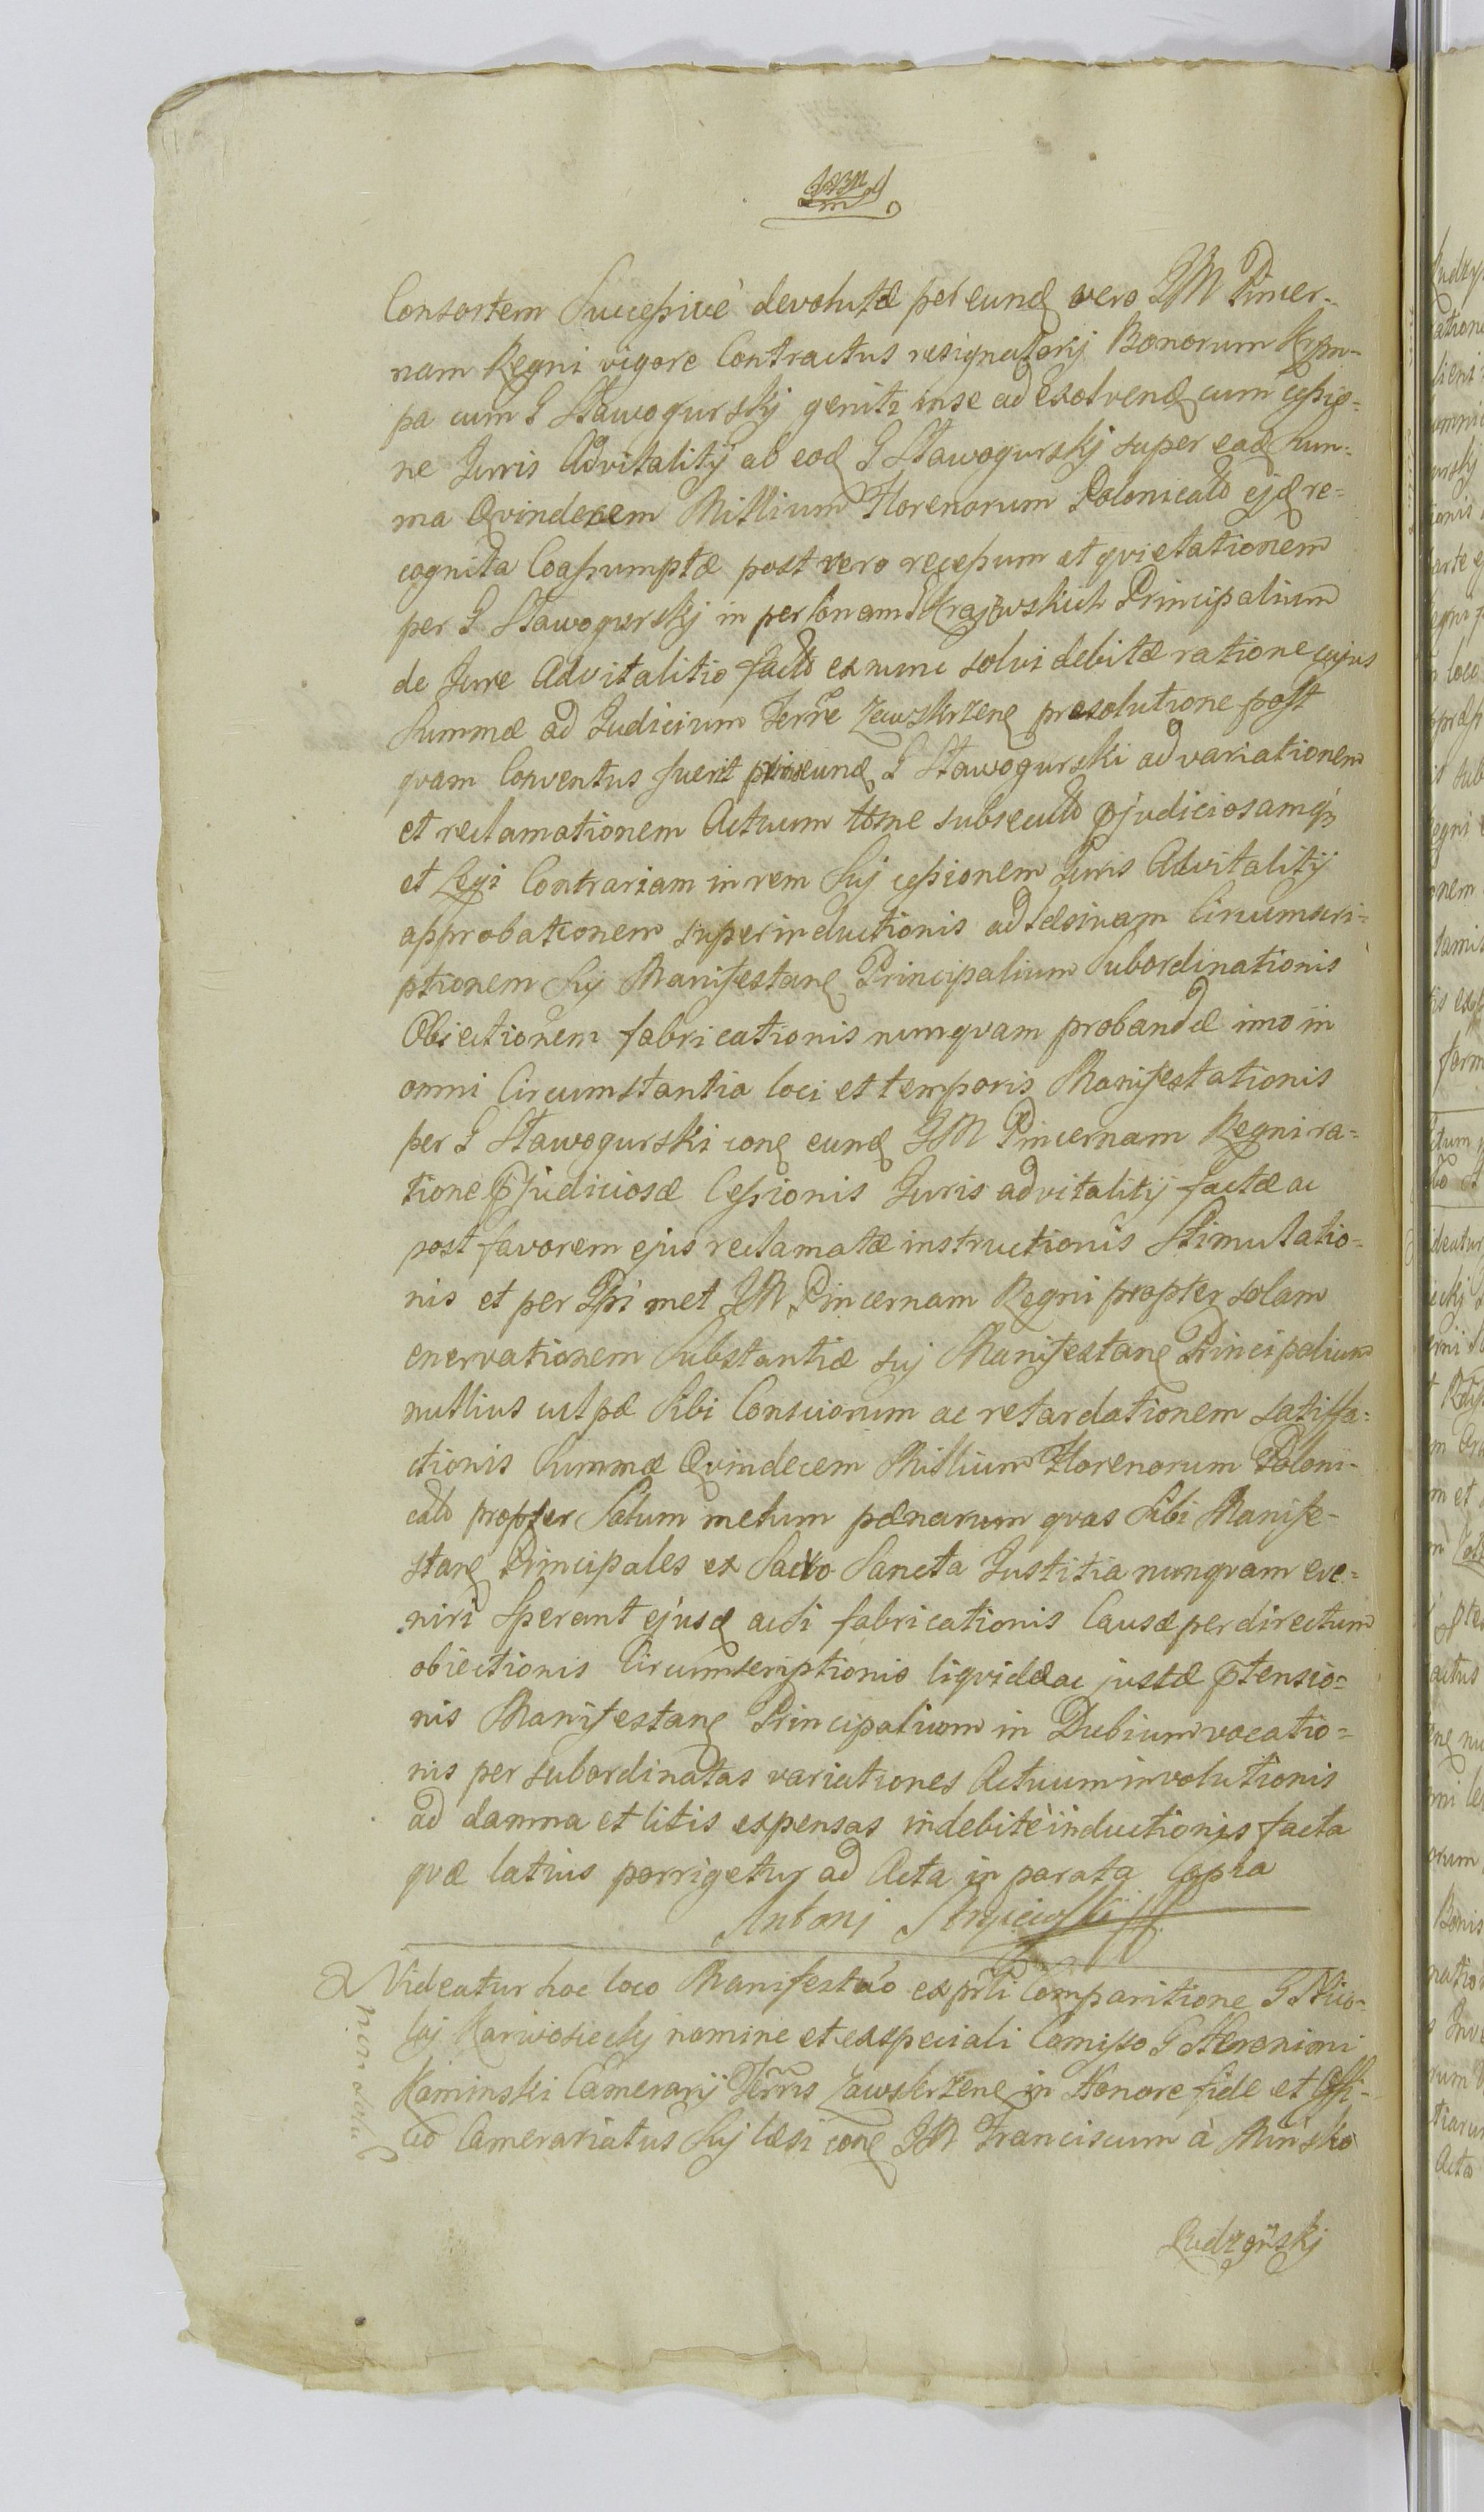 Consortem Successivè devolutæ per eund vero JM Pincer-
nam Regni vigore Contractus resignatorij Bonorum Krpn-
pa cum G Stawogurskj genits in se ad exolvend cum cessio-
ne Juris Advitalitij ab eod G Stawogurskj super ead Sum-
ma Qvindecem Millium Florenorum Polonicalo ejd re-
cognita Coassumptæ post vero recessum et qvietationem
per G Stawogurskj in personam Krajewskich Principalium
de Jure Advitalitio facto exnunc solvi debitæ ratione cujus
Summæ ad Judicium Terrae Zawskrzene præsolutione post
qvam Conventus fuerit eund G Stawogurski ad variationem
et reclamationem Actuum subsecuto pjudiciosamqz
et Legi Contrariam in rem Suj cessionem Juris Advitalitij
approbationem superinductionis ad læsivam Circumscri-
ptionem Suj Manifestane Principalium Subordinationis
Obiectionem fabricationis nunqvam probandæ imo in
omni Circumstantia loci et temporis Manifestationis
per G Stawogurski cone eund JM Pincernam Regni ra-
tione pjudiciosæ Cessionis Juris advitalitij factæ ac
post favorem ejus reclamatæ instructionis Stimulatio-
nis et per Ipsi met JM Pincernam Regni propter solam
enervationem Substantiæ suj Manifestane Principalium
nullius culpæ Sibi Consciorum ac retardationem satisfa-
ctionis Summæ Qvindecem Millium Florenorum Poloni-
calo propter Solum metum pænarum qvas Sibi Manife-
stane Principales ex Sacro Sancta Justitia nunqvam eve-
niri Sperant ejusd acsi fabricationis Causæ per directum
obiectionis Circumscriptionis liqvidæ ac justæ ptensio-
nis Manifestane Principalium in Dubium vocatio-
nis per subordinatas variationes Actuum involutionis
ad damna et litis expensas indebitè inductionis facta
qvæ latius porrigetur ad Acta in parata Copia
Antonj
Videatur hoc loco Manifestao ex prti Comparitione G Mico-
laj Karwosieckj nomine et ex speciali Comisso G Heronimi
Kaminski Camerarij Terris Zawskrzene in Honore fide et Offi-
cio Camerariatus Suj læsi cone JM Franciscum à Minsko
non solut
Ludzynskj